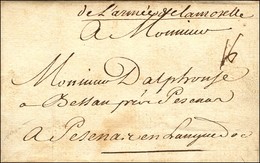 de L'armée de la moselle
A Monsieur
Monsieur Dalphonse
a Bessan près Pesenas
A Pesenas en Languedoc